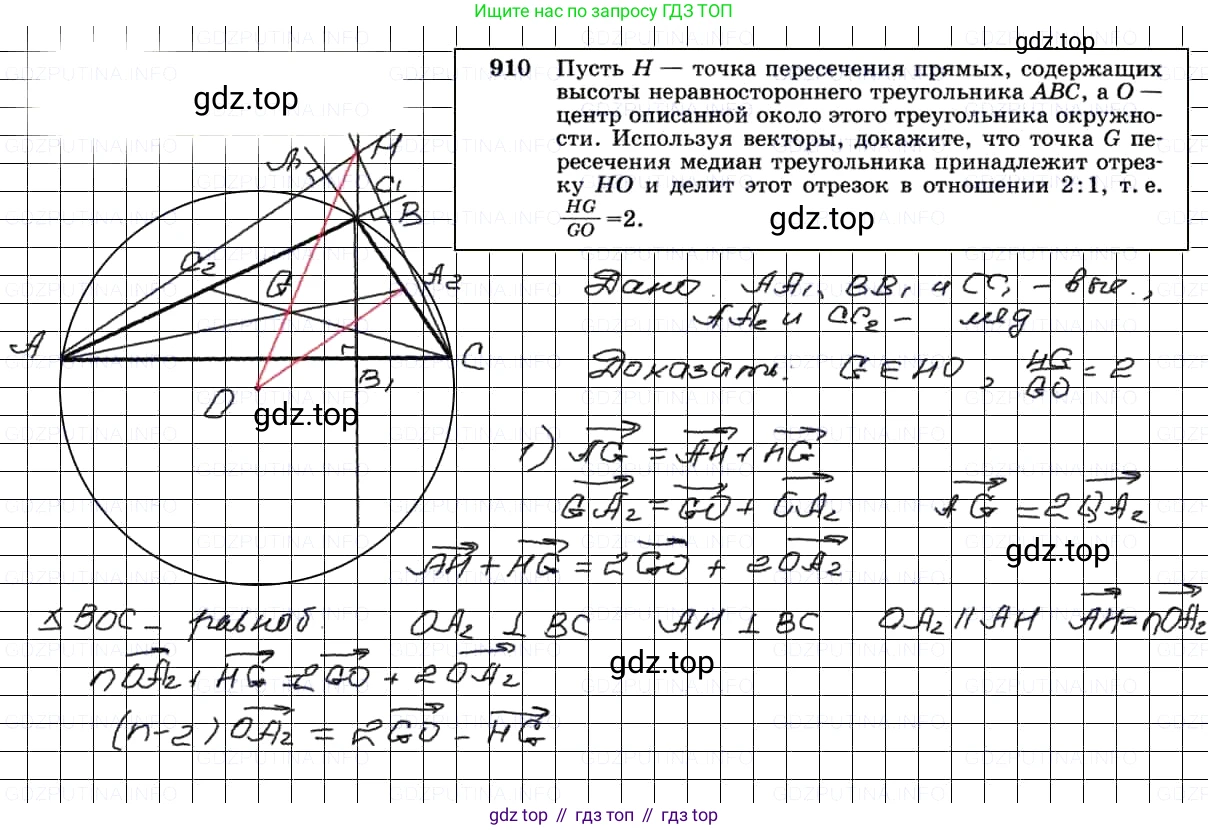 Ищите нас по запросу ГДЗ ТОП
gdz.top
910 Пусть H — точка пересечения прямых, содержащих
высоты неравностороннего треугольника ABC, а O —
центр описанной около этого треугольника окружно-
сти. Используя векторы, докажите, что точка G пе-
ресечения медиан треугольника принадлежит отрез-
ку HO и делит этот отрезок в отношении 2:1, т. е.
HG/GO =2.
gdz.top
gdz.top
H
C₁
B
C₂
G
A₂
A
C
B₁
O
gdz.top
Дано. AA₁, BB₁ и CC₁ – выс.,
AA₂ и CC₂ – мед
Доказать: G ∈ HO, HG/GO = 2
1) AG = AH + HG
GA₂ = GO + OA₂ AG = 2GA₂
gdz.top
AH + HG = 2GO + 2OA₂
Δ BOC – равноб. OA₂ ⊥ BC AH ⊥ BC OA₂ || AH AH = nOA₂
gdz.top
nOA₂ + HG = 2GO + 2OA₂
(n-2) OA₂ = 2GO – HG
gdz.top
gdz.top // гдз топ // gdz.top